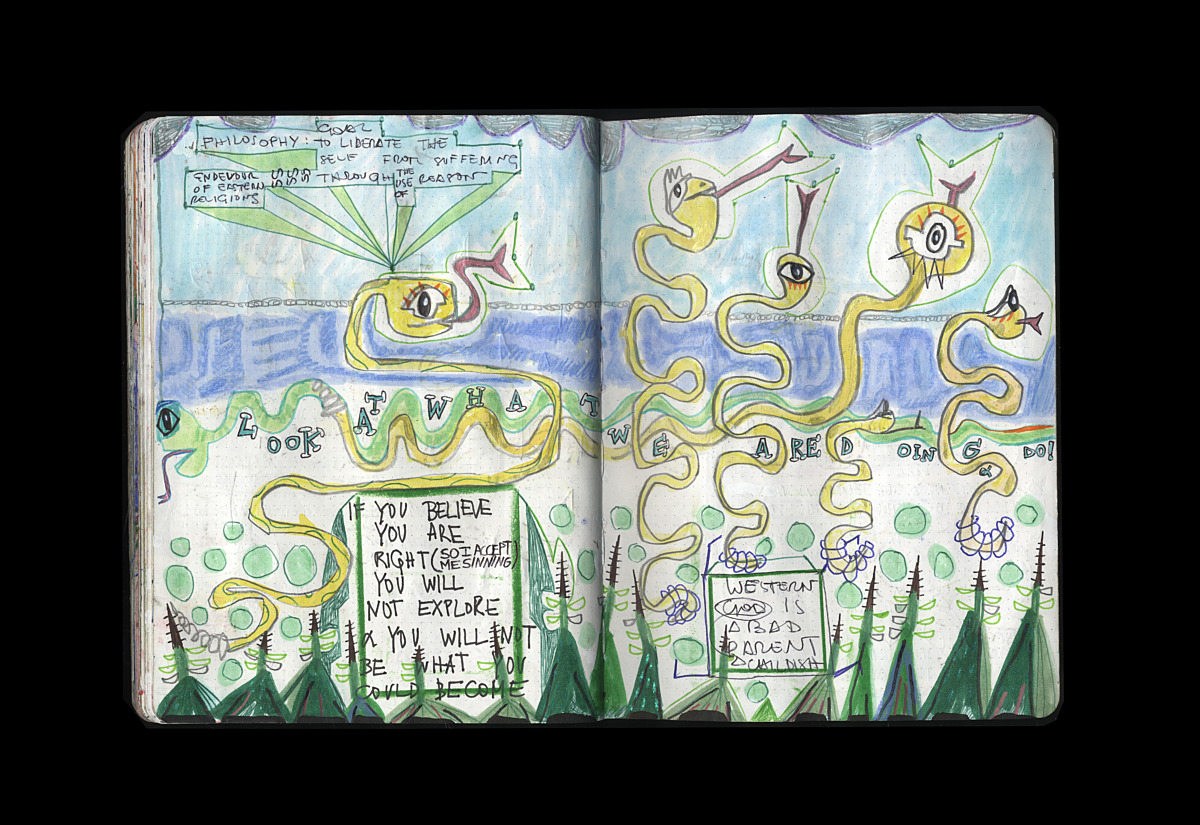 GOAL
PHILOSOPHY: TO LIBERATE THE
SELF FROM SUFFERING
THROUGH THE USE OF REASON
ENDEVOUR
OF EASTERN
RELIGIONS
LOOK AT WHAT WE ARE DOING & DO!
IF YOU BELIEVE
YOU ARE
RIGHT (SO I ACCEPT
ME SINNING)
YOU WILL
NOT EXPLORE
& YOU WILL NOT
BE WHAT YOU
COULD BECOME
WESTERN
GOD IS
A BAD
PARENT
& CHILDISH